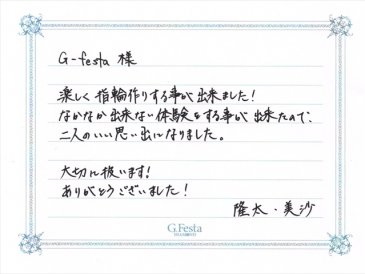 G-festa 様
楽しく指輪作りする事が出来ました!
なかなか出来ない体験をする事が出来たので、
二人のいい思い出になりました。
大切に扱います!
ありがとうございました!
隆太・美沙
G.Festa